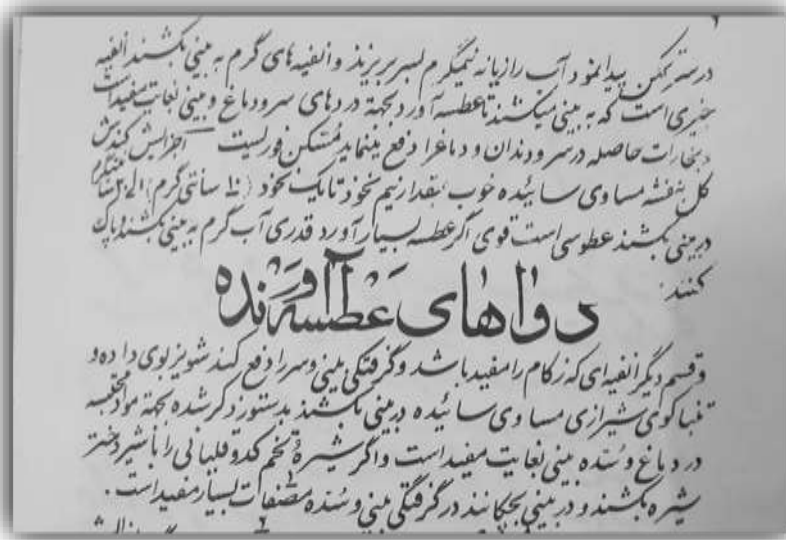 درسر تمکین پیدا نمود آب رازیانه نیمگرم بسر بریزند و انفیه های گرم به بینی بکشند انفیه
چیزی است که به بینی میکشند تا عطسه آورد بجهة دردهای سر و دماغ و بینی بغایت مفید است
و بخارات حاصله در سر و دندان و دماغ را دفع مینماید مُسکن فوریست اجزایش کندش
گل بنفشه مساوی سائیده خوب بمقدار نیم نخود تا یک نخود (۱۰ سانتی گرم) الی ۲۰ سانتیگرم
در بینی بکشند عطوسی است قوی اگر عطسه بسیار آورد قدری آب گرم به بینی بکشند و پاک
کنند.
دواهای عطسه آورنده
و قسم دیگر انفیه ای که زکام را مفید باشد و گرفتگی بینی و سر را دفع کند شونیز بوی داده و
تنباکوی شیرازی مساوی سائیده در بینی بکشند بدستور ذکر شده بجهة مواد محتبسه
در دماغ و سُدّه بینی بغایت مفید است و اگر شیرهٔ تخم کدو قلیانی را با شیر دختر
شیره بکشند و در بینی بچکانند در گرفتگی بینی و سُدّه مصفات بسیار مفید است.